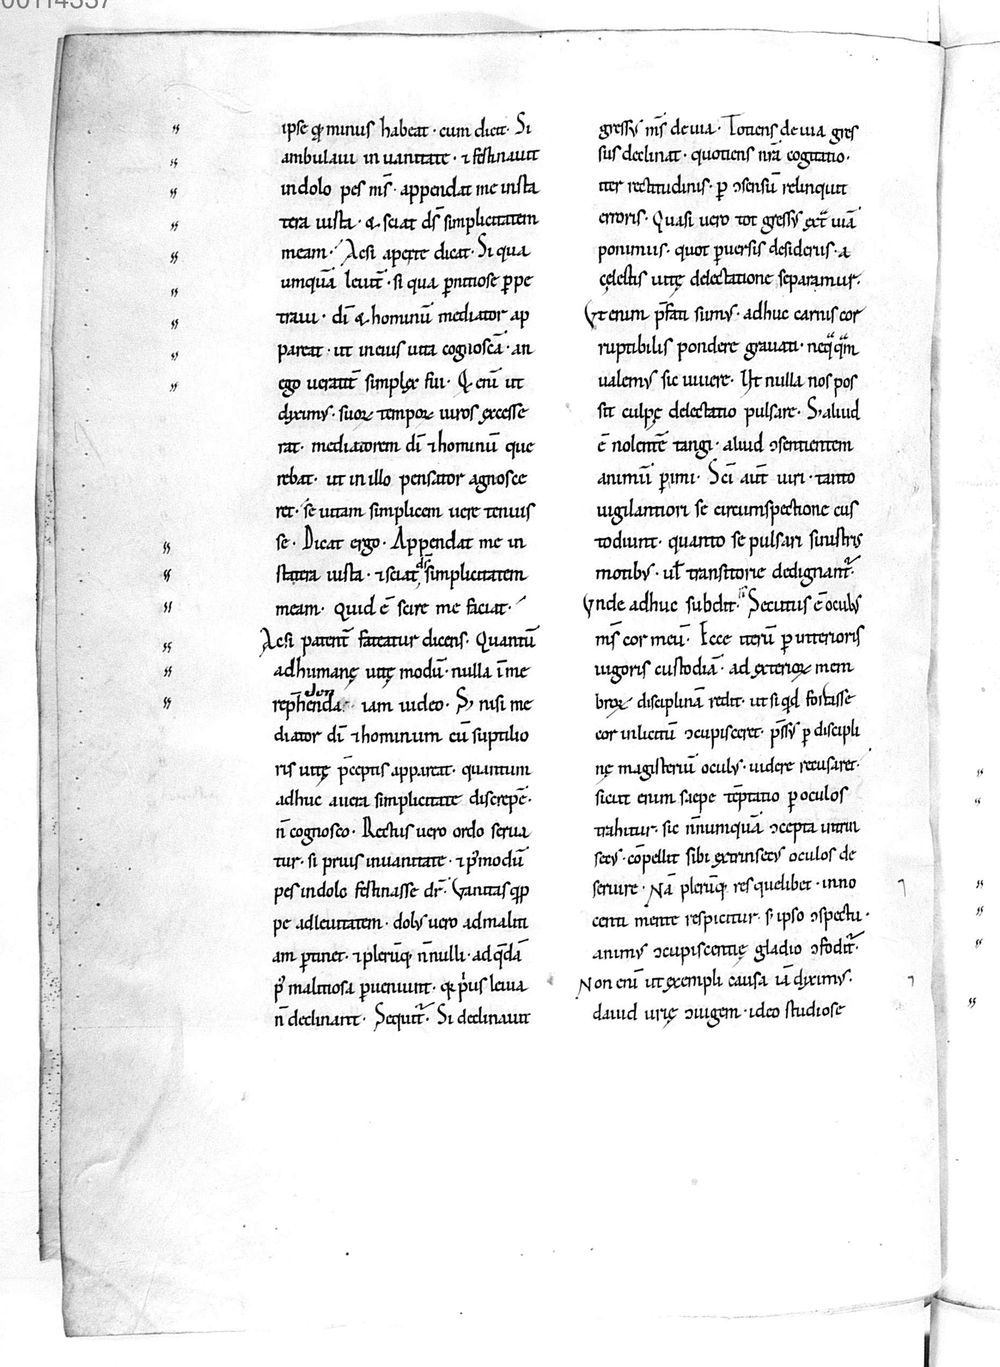 00114337
ipse qđ minus habeat · cum dicit · Si
ambulaui in uanitate · ⁊ festinauit
in dolo pes mſ · appendat me in sta
tera iusta · & sciat dſ simplicitatem
meam · Acsi aperte dicat · Si qua
umquā leuit̄ · si qua p̄nitiose p̱pe
traui · dī & hominū mediator ap
pareat · ut in eius uita cognoscā · an
ego uerati᷒ simplex fui · Q enī ut
diximꝰ · suoꝝ tempoꝝ uiros excesse
rat · mediatorem dī ⁊ hominū que
rebat · ut in illo pensator agnosce
ret · se uitam simplicem uere tenuis
se · Dicat ergo · Appendat me in
statera iusta · ⁊ sciat dſ simplicitatem
meam · quid ē scire me faciat ·
Acsi patent̄ fateatur dicens · Quantū
ad humanę uitę modū · nulla ī me
rep̄hendenda · iam uideo · S; nisi me
diator dī ⁊ hominum cū suptilio
ris uitę p̄ceptis appareat · quantum
adhuc a uera simplicitate discrepē ·
n̄ cognosco · Rectus uero ordo serua
tur · si prius in uanitate · ⁊ pꝰmodū
pes in dolo festinasse dr̄ · Vanitas qꝑp
pe ad leuitatem · dolꝰ uero ad maliti
am ꝑtinet · ⁊ plerūq; n̄nulli · ad qđā
pꝰ malitiosa ꝑueniunt · q̨ p̓us leuia
n̄ declinant · Sequit᷒ · Si declinauit
gressꝰ mſ de uia · Totiens de uia gres
sus declinat · quotiens nr̄a cogitatio ·
iter rectitudinis · ꝑ ↄsensū relinquit
erroris · Quasi uero tot gressꝰ ext̄ uiā
ponimus · quot ꝑuersis desideriis · a
cęlestis uitę delectatione separamur ·
Vt enim p̄fati sumꝰ · adhuc carnis cor
ruptibilis pondere grauati · neq̄q̄m
ualemꝰ sic uiuere · Ut nulla nos pos
sit culpę delectatio pulsare · S; aliud
ē nolentē tangi · aliud ↄsentientem
animū ꝑimi · Scī aut̄ uiri · tanto
uigilantiori se circumspectione cus
todiunt · quanto se pulsari sinistris
motibꝰ · ul̄ transitorie dedignant᷒ ·
Vnde adhuc subdit · Secutus ē oculꝰ
mſ cor meū · Ecce iterū ꝑ utterioris
uigoris custodiā · ad exterioꝝ mem
broꝝ disciplinā redit · ut si qđ fortasse
cor inlicitū ↄcupisceret · p̄ssꝰ ꝑ discipli
nę magisteriū oculꝰ · uidere recusaret ·
sicut enim saepe tēptatio ꝑ oculos
trahitur · sic n̄numquā ↄcepta intrin
secꝰ · cōpellit sibi extrinsecꝰ oculos de
seruire · Nā plerūq; res quelibet · inno
centi mente respicitur · s; ipso ↄspectu ·
animꝰ ↄcupiscentię gladio ↄfodit᷒ ·
Non enī ut exempli causa iā diximꝰ ·
dauid urię ↄiugem · ideo studiose